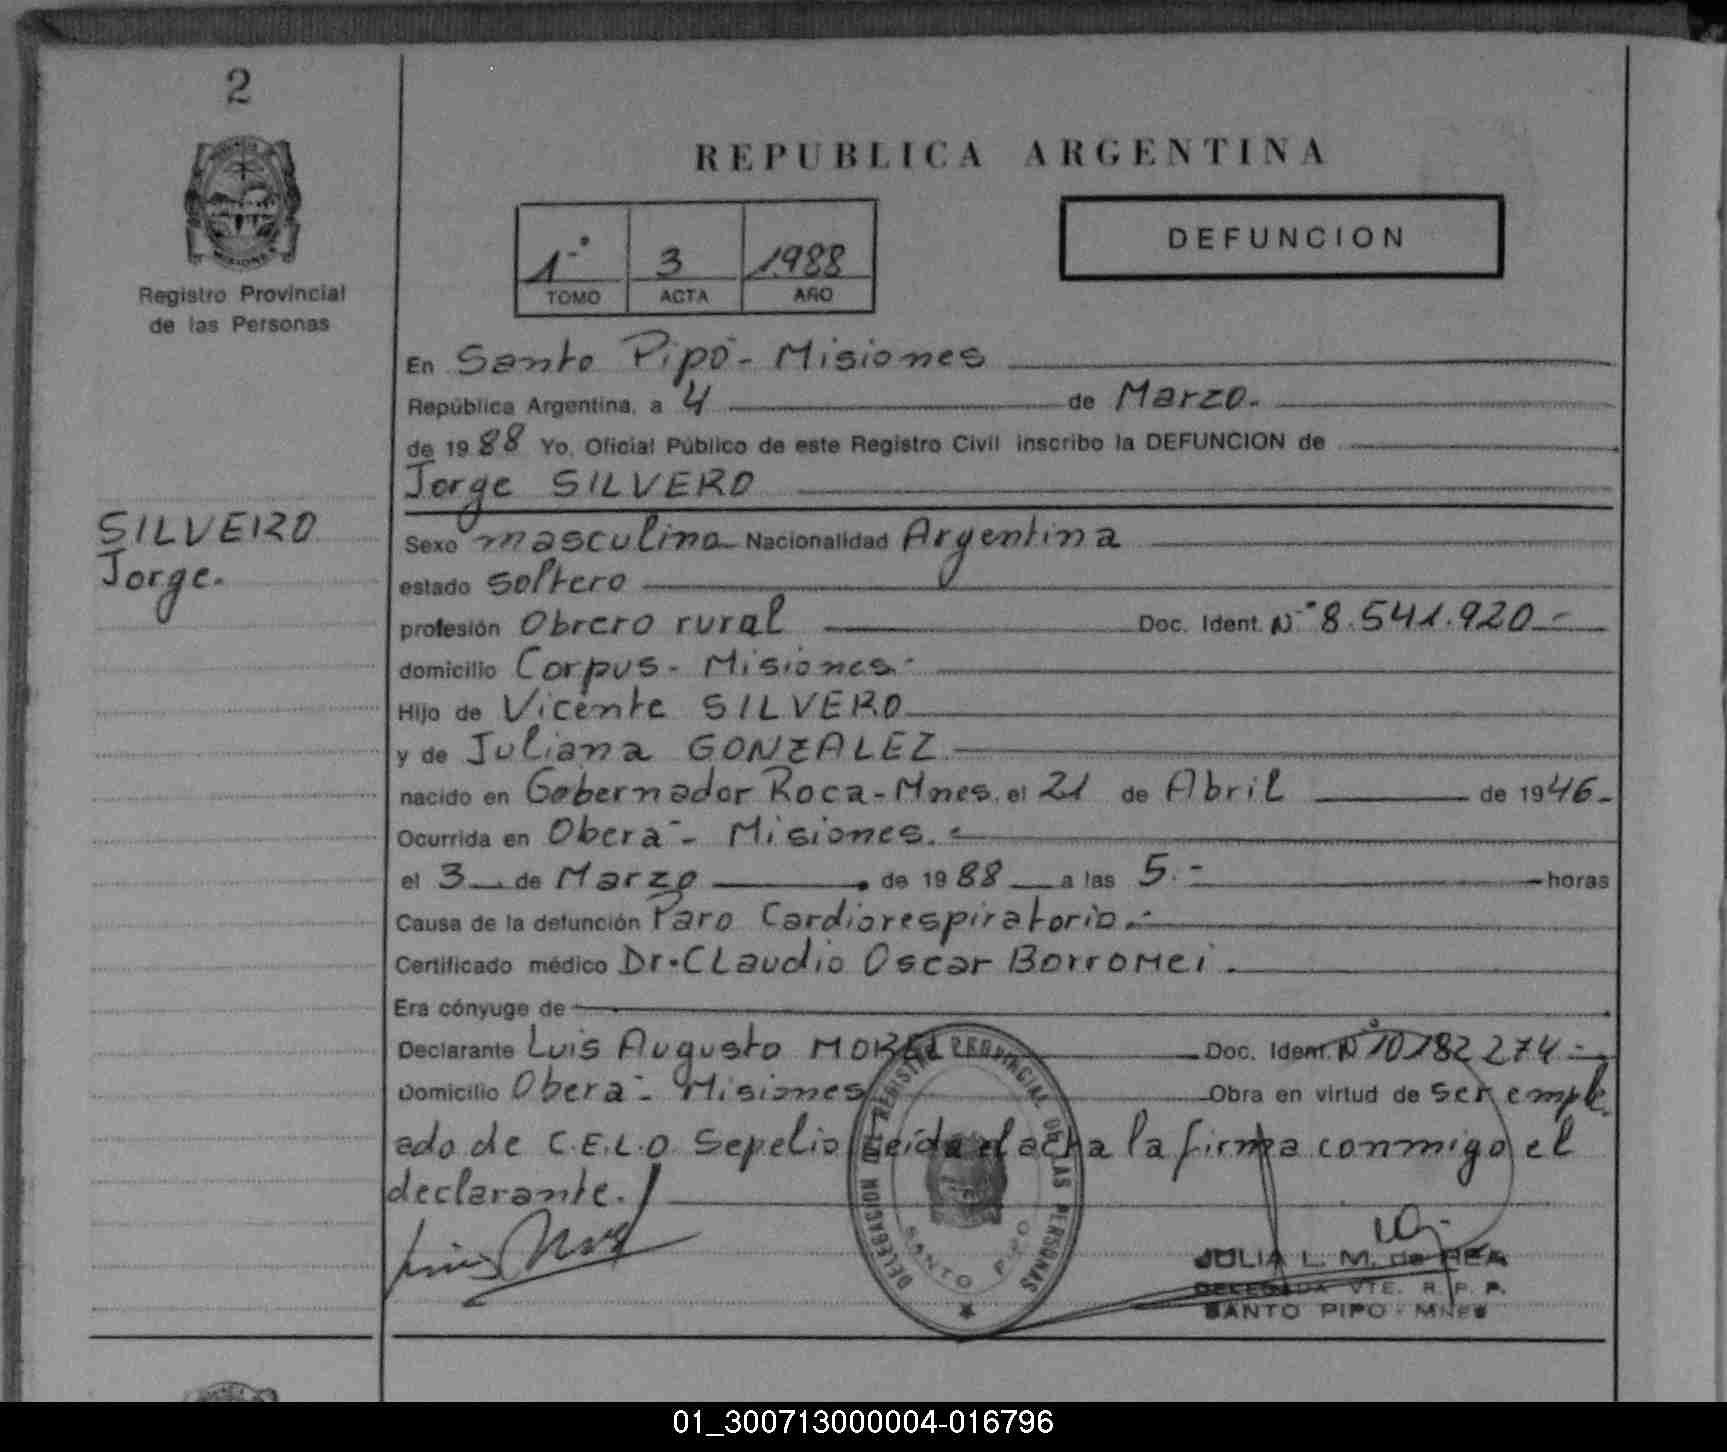 2
REPUBLICA ARGENTINA
1º 3 1988
TOMO ACTA AÑO
DEFUNCION
Registro Provincial
de las Personas
En Santo Pipó - Misiones
República Argentina, a 4 de Marzo.
de 1988 Yo, Oficial Público de este Registro Civil inscribo la DEFUNCION de
Jorge SILVERO
SILVEIRO
Jorge.
Sexo masculino Nacionalidad Argentina
estado soltero
profesión Obrero rural Doc. Ident. Nº 8.541.920 -
domicilio Corpus - Misiones.
Hijo de Vicente SILVERO
y de Juliana GONZALEZ
nacido en Gobernador Roca - Mnes. el 21 de Abril de 1946 -
Ocurrida en Oberá - Misiones.
el 3 de Marzo de 1988 a las 5. - horas
Causa de la defunción Paro Cardiorespiratorio. -
Certificado médico Dr. CLaudio Oscar Borromei.
Era cónyuge de
Declarante Luis Augusto MOREL Doc. Ident. Nº 10182274 -
Domicilio Oberá - Misiones Obra en virtud de ser emple
ado de C.E.L.O. Sepelio leída el acta la firma conmigo el
declarante.
DELEGACION DEL REGISTRO PROVINCIAL DE LAS PERSONAS
SANTO PIPO
JULIA L. M. de REA
DELEGADA VTE. R. P. P.
SANTO PIPO - MNES
01_300713000004-016796